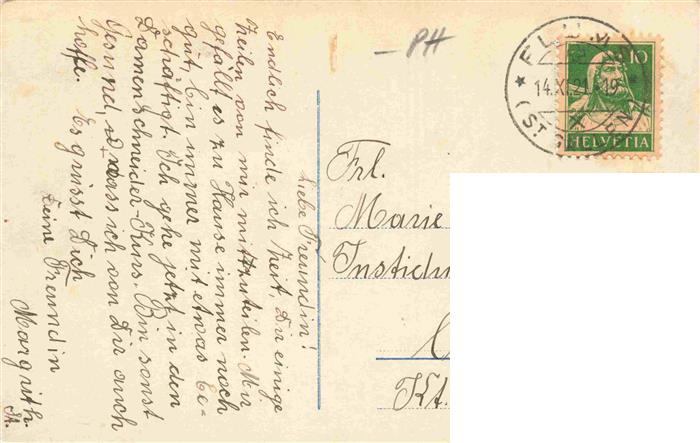 Liebe Freundin!
Endlich finde ich Zeit, Dir einige
Zeilen von mir mitzuteilen. Mir
gefällt es zu Hause immer noch
gut, bin immer mit etwas be-
schäftigt. Ich gehe jetzt in den
Damenschneider-Kurs. Bin sonst
gesund, was ich von Dir auch
hoffe. Es grüsst Dich
Deine Freundin
Margrith.
St.
- PH
FLUMS
14.XI.21.-19
(ST. GALLEN)
10
HELVETIA
Frl.
Marie
Institu
Kt.